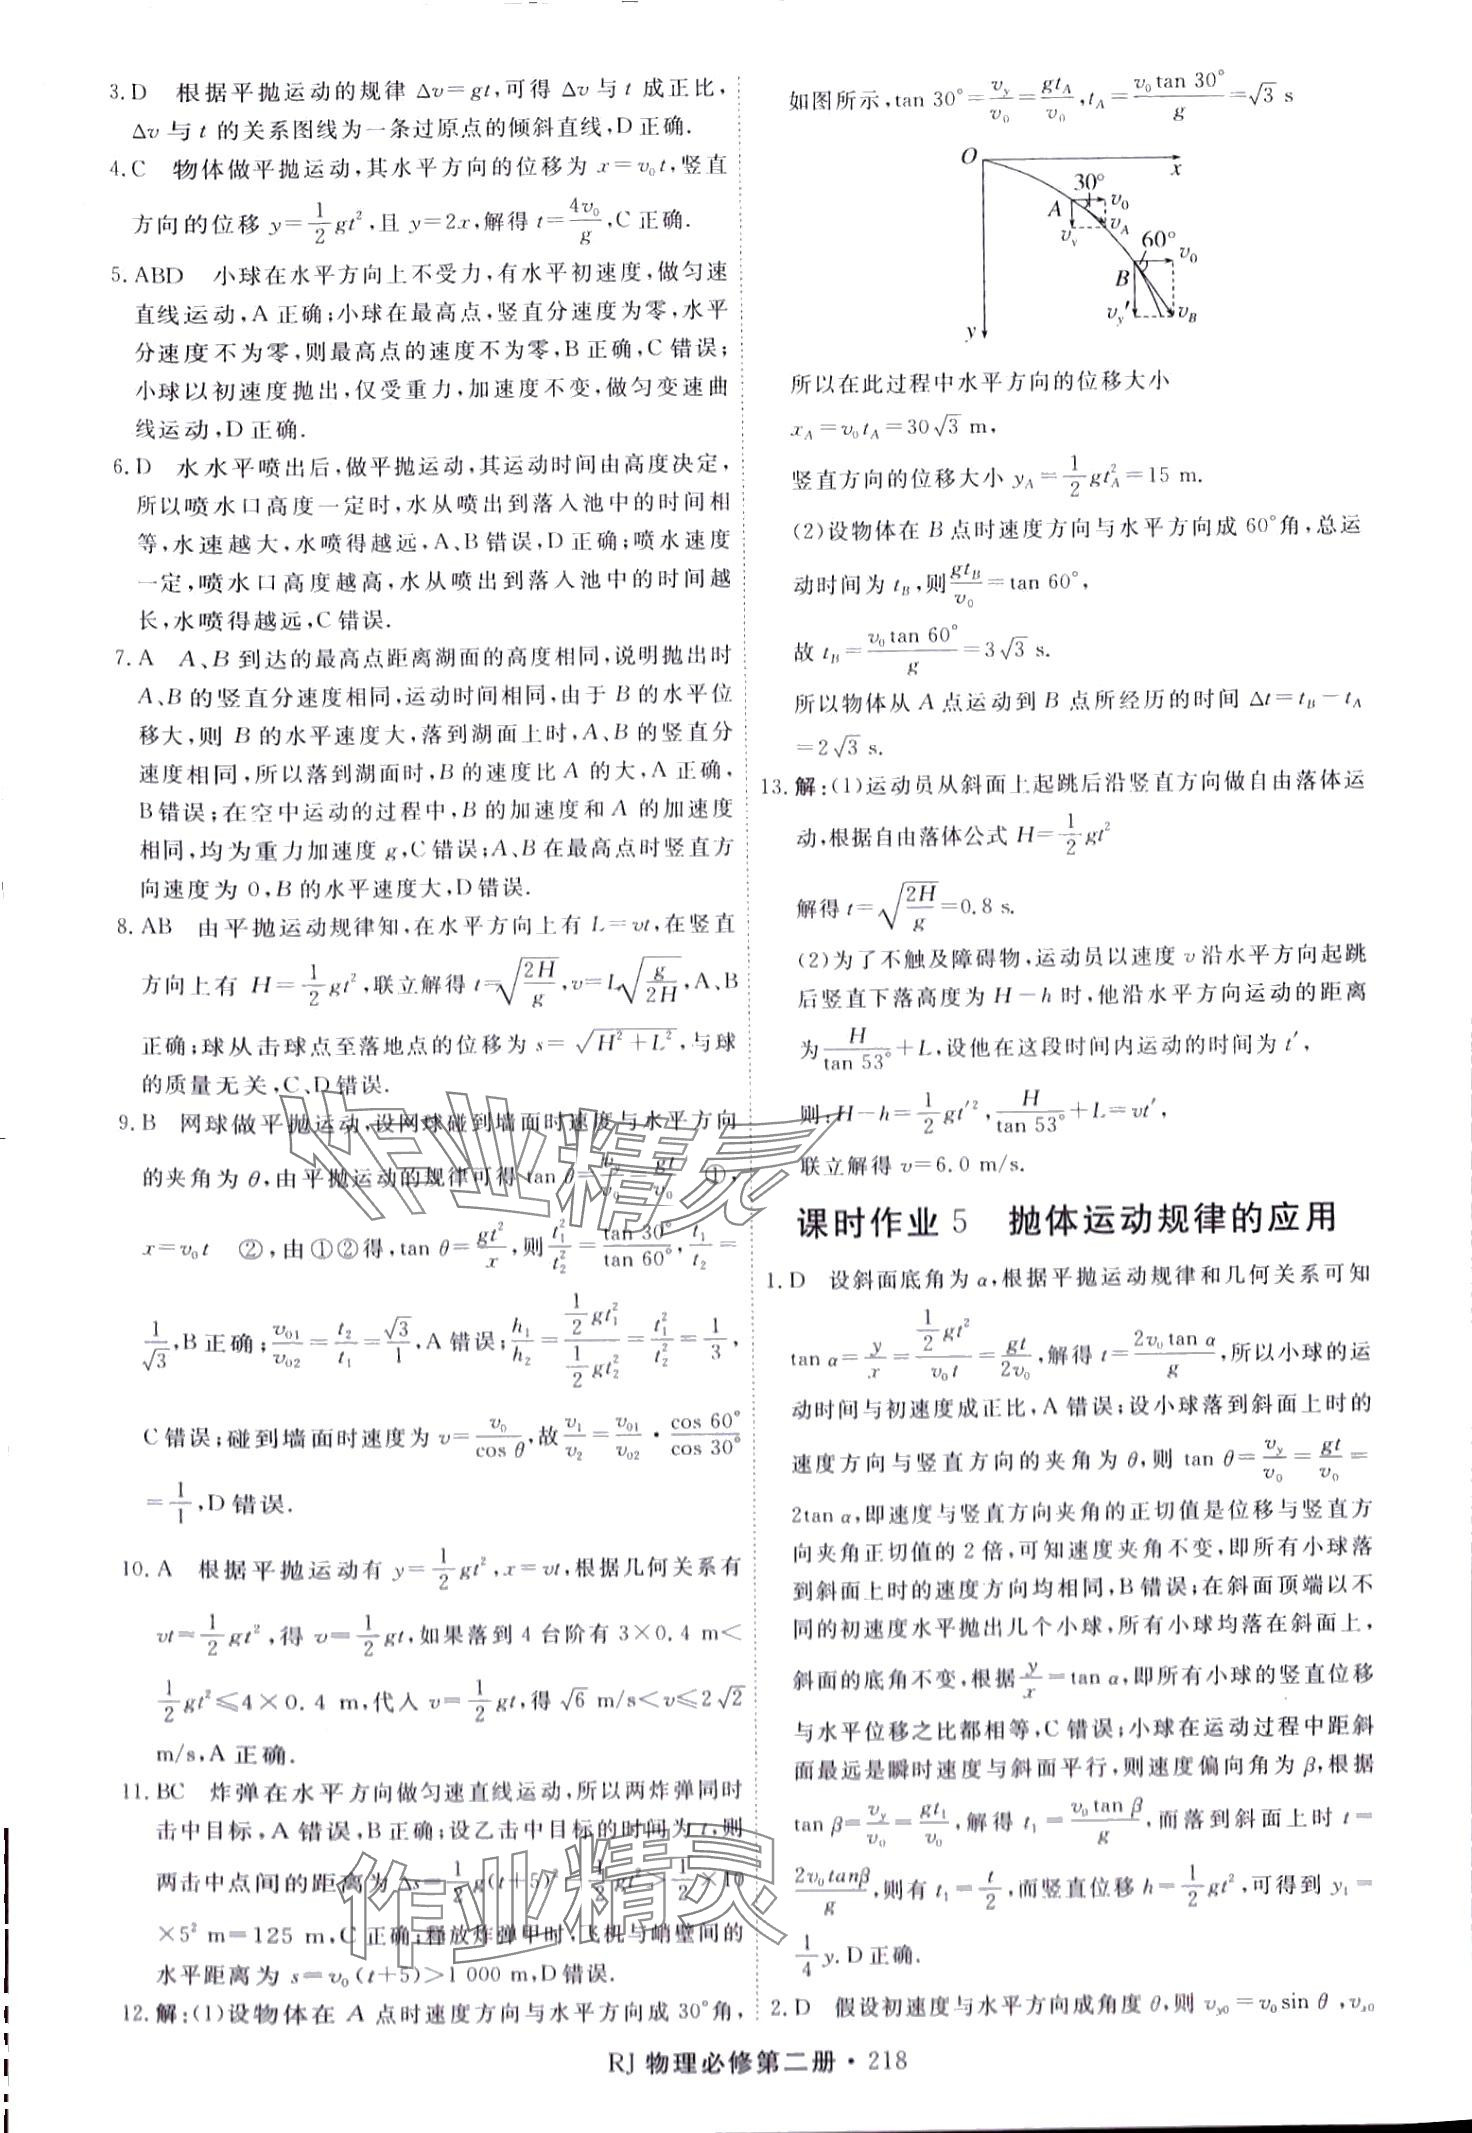 3. D　根据平抛运动的规律 Δv=gt,可得 Δv 与 t 成正比,
Δv 与 t 的关系图线为一条过原点的倾斜直线,D 正确.
4. C　物体做平抛运动,其水平方向的位移为 x=v₀t,竖直
方向的位移 y=1/2 gt²,且 y=2x,解得 t=4v₀/g,C 正确.
5. ABD　小球在水平方向上不受力,有水平初速度,做匀速
直线运动,A 正确;小球在最高点,竖直分速度为零,水平
分速度不为零,则最高点的速度不为零,B 正确,C 错误;
小球以初速度抛出,仅受重力,加速度不变,做匀变速曲
线运动,D 正确.
6. D　水水平喷出后,做平抛运动,其运动时间由高度决定,
所以喷水口高度一定时,水从喷出到落入池中的时间相
等,水速越大,水喷得越远,A、B 错误,D 正确;喷水速度
一定,喷水口高度越高,水从喷出到落入池中的时间越
长,水喷得越远,C 错误.
7. A　A、B 到达的最高点距离湖面的高度相同,说明抛出时
A、B 的竖直分速度相同,运动时间相同,由于 B 的水平位
移大,则 B 的水平速度大,落到湖面上时,A、B 的竖直分
速度相同,所以落到湖面时,B 的速度比 A 的大,A 正确,
B 错误;在空中运动的过程中,B 的加速度和 A 的加速度
相同,均为重力加速度 g,C 错误;A、B 在最高点时竖直方
向速度为 0,B 的水平速度大,D 错误.
8. AB　由平抛运动规律知,在水平方向上有 L=vt,在竖直
方向上有 H=1/2 gt²,联立解得 t=√(2H/g),v=L√(g/2H),A、B
正确;球从击球点至落地点的位移为 s=√(H²+L²),与球
的质量无关,C、D 错误.
9. B　网球做平抛运动,设网球碰到墙面时速度与水平方向
的夹角为 θ,由平抛运动的规律可得 tan θ=v_y/v₀=gt/v₀　①,
x=v₀t　②,由①②得,tan θ=gt²/x,则 t₁²/t₂²=tan 30°/tan 60°,t₁/t₂=
1/√3,B 正确;v₀₁/v₀₂=t₂/t₁=√3/1,A 错误;h₁/h₂=(1/2 gt₁²)/(1/2 gt₂²)=t₁²/t₂²=1/3,
C 错误;碰到墙面时速度为 v=v₀/cos θ,故 v₁/v₂=v₀₁/v₀₂·cos 60°/cos 30°
=1/1,D 错误.
10. A　根据平抛运动有 y=1/2 gt²,x=vt,根据几何关系有
vt=1/2 gt²,得 v=1/2 gt,如果落到 4 台阶有 3×0.4 m<
1/2 gt²≤4×0.4 m,代入 v=1/2 gt,得 √6 m/s<v≤2√2
m/s,A 正确.
11. BC　炸弹在水平方向做匀速直线运动,所以两炸弹同时
击中目标,A 错误,B 正确;设乙击中目标的时间为 t,则
两击中点间的距离为 Δs=1/2 g(t+5)²-1/2 gt²>1/2×10
×5² m=125 m,C 正确;释放炸弹甲时,飞机与峭壁间的
水平距离为 s=v₀(t+5)>1 000 m,D 错误.
12. 解:(1)设物体在 A 点时速度方向与水平方向成 30°角,
如图所示,tan 30°=v_y/v₀=gt_A/v₀,t_A=v₀tan 30°/g=√3 s
O
x
30°
A
v₀
v_y
v_A
60°
v₀
B
v_y′
v_B
y
所以在此过程中水平方向的位移大小
x_A=v₀t_A=30√3 m,
竖直方向的位移大小 y_A=1/2 gt_A²=15 m.
(2)设物体在 B 点时速度方向与水平方向成 60°角,总运
动时间为 t_B,则 gt_B/v₀=tan 60°,
故 t_B=v₀tan 60°/g=3√3 s.
所以物体从 A 点运动到 B 点所经历的时间 Δt=t_B-t_A
=2√3 s.
13. 解:(1)运动员从斜面上起跳后沿竖直方向做自由落体运
动,根据自由落体公式 H=1/2 gt²
解得 t=√(2H/g)=0.8 s.
(2)为了不触及障碍物,运动员以速度 v 沿水平方向起跳
后竖直下落高度为 H-h 时,他沿水平方向运动的距离
为 H/tan 53°+L,设他在这段时间内运动的时间为 t′,
则:H-h=1/2 gt′²,H/tan 53°+L=vt′,
联立解得 v=6.0 m/s.
课时作业 5　抛体运动规律的应用
1. D　设斜面底角为 α,根据平抛运动规律和几何关系可知
tan α=y/x=(1/2 gt²)/(v₀t)=gt/2v₀,解得 t=2v₀tan α/g,所以小球的运
动时间与初速度成正比,A 错误;设小球落到斜面上时的
速度方向与竖直方向的夹角为 θ,则 tan θ=v_y/v₀=gt/v₀=
2tan α,即速度与竖直方向夹角的正切值是位移与竖直方
向夹角正切值的 2 倍,可知速度夹角不变,即所有小球落
到斜面上时的速度方向均相同,B 错误;在斜面顶端以不
同的初速度水平抛出几个小球,所有小球均落在斜面上,
斜面的底角不变,根据 y/x=tan α,即所有小球的竖直位移
与水平位移之比都相等,C 错误;小球在运动过程中距斜
面最远是瞬时速度与斜面平行,则速度偏向角为 β,根据
tan β=v_y/v₀=gt₁/v₀,解得 t₁=v₀tan β/g,而落到斜面上时 t=
2v₀tanβ/g,则有 t₁=t/2,而竖直位移 h=1/2 gt²,可得到 y₁=
1/4 y.D 正确.
2. D　假设初速度与水平方向成角度 θ,则 v_y0=v₀sin θ,v_x0
作业精灵
作业精灵
RJ 物理必修第二册·218